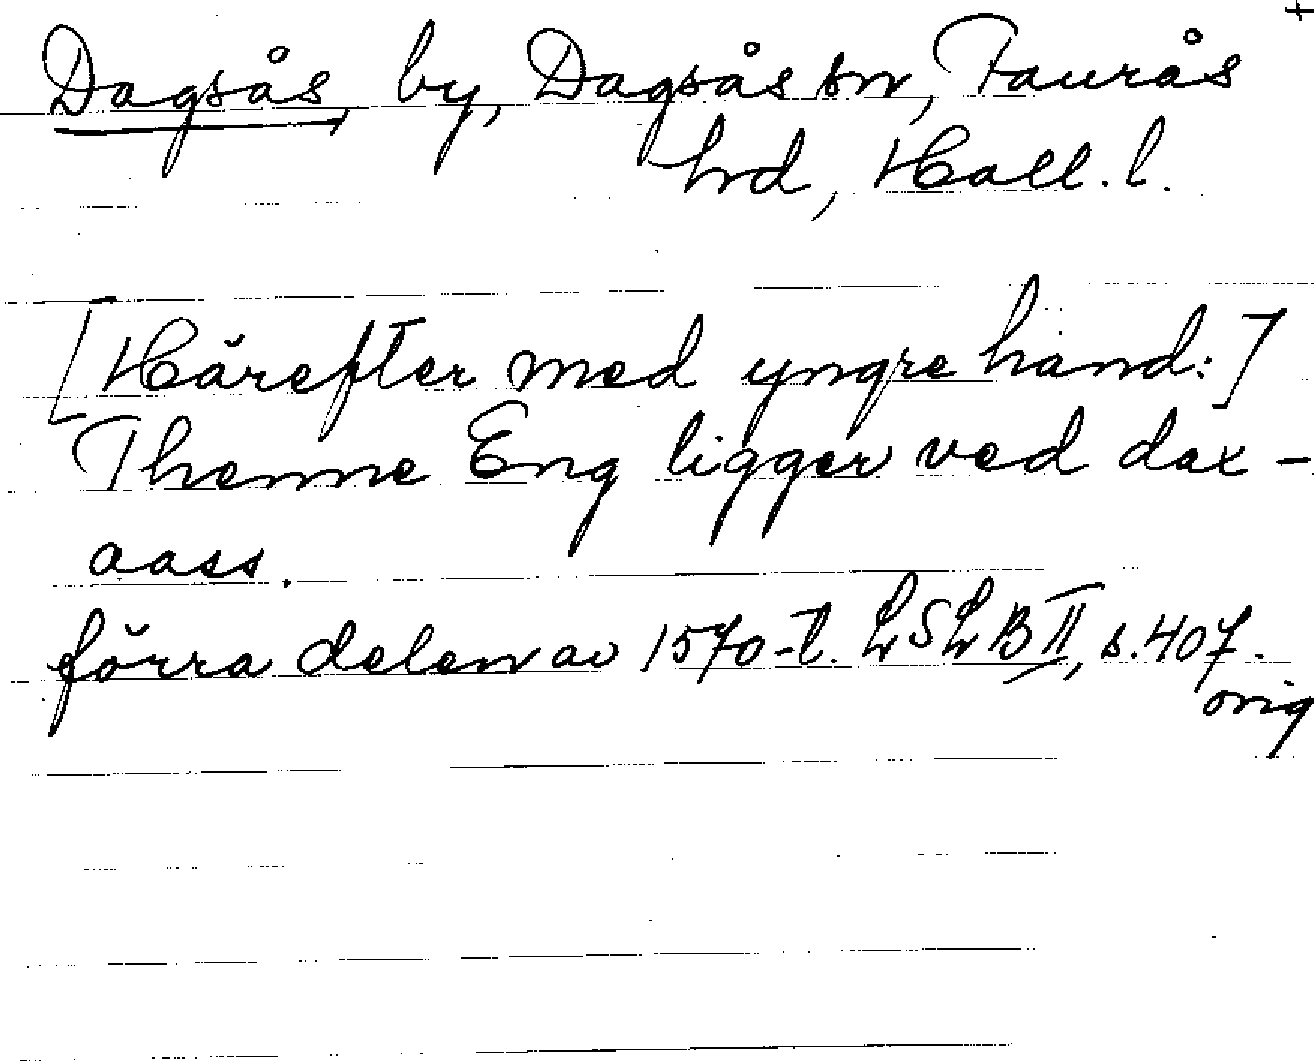 +
Dagsås, by, Dagsås sn, Faurås
hrd, Hall. l.
[Härefter med yngre hand:]
Thenne Eng ligger ved dax-
aass.
förra delen av 1570-t. LSLB II, s. 407.
orig